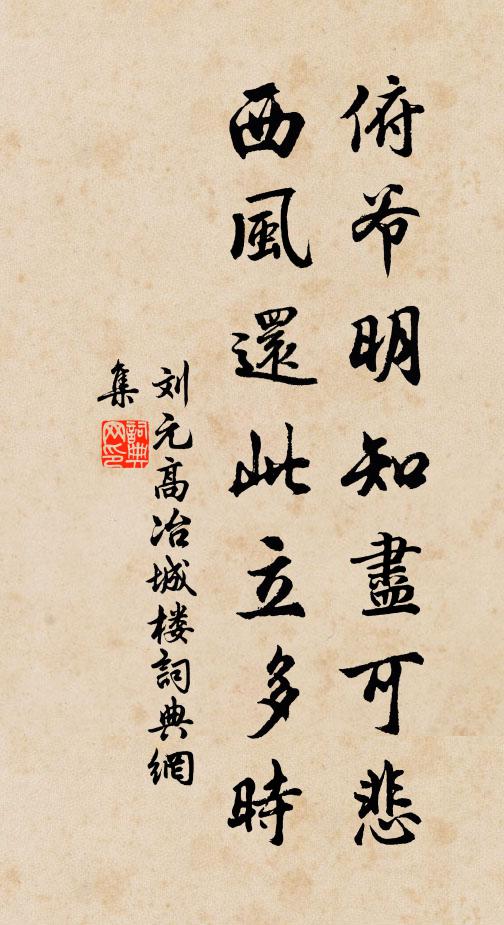 俯爷明知盡可悲
西風還此立多時
刘元高冶城楼詞典網
集
詞典
网印